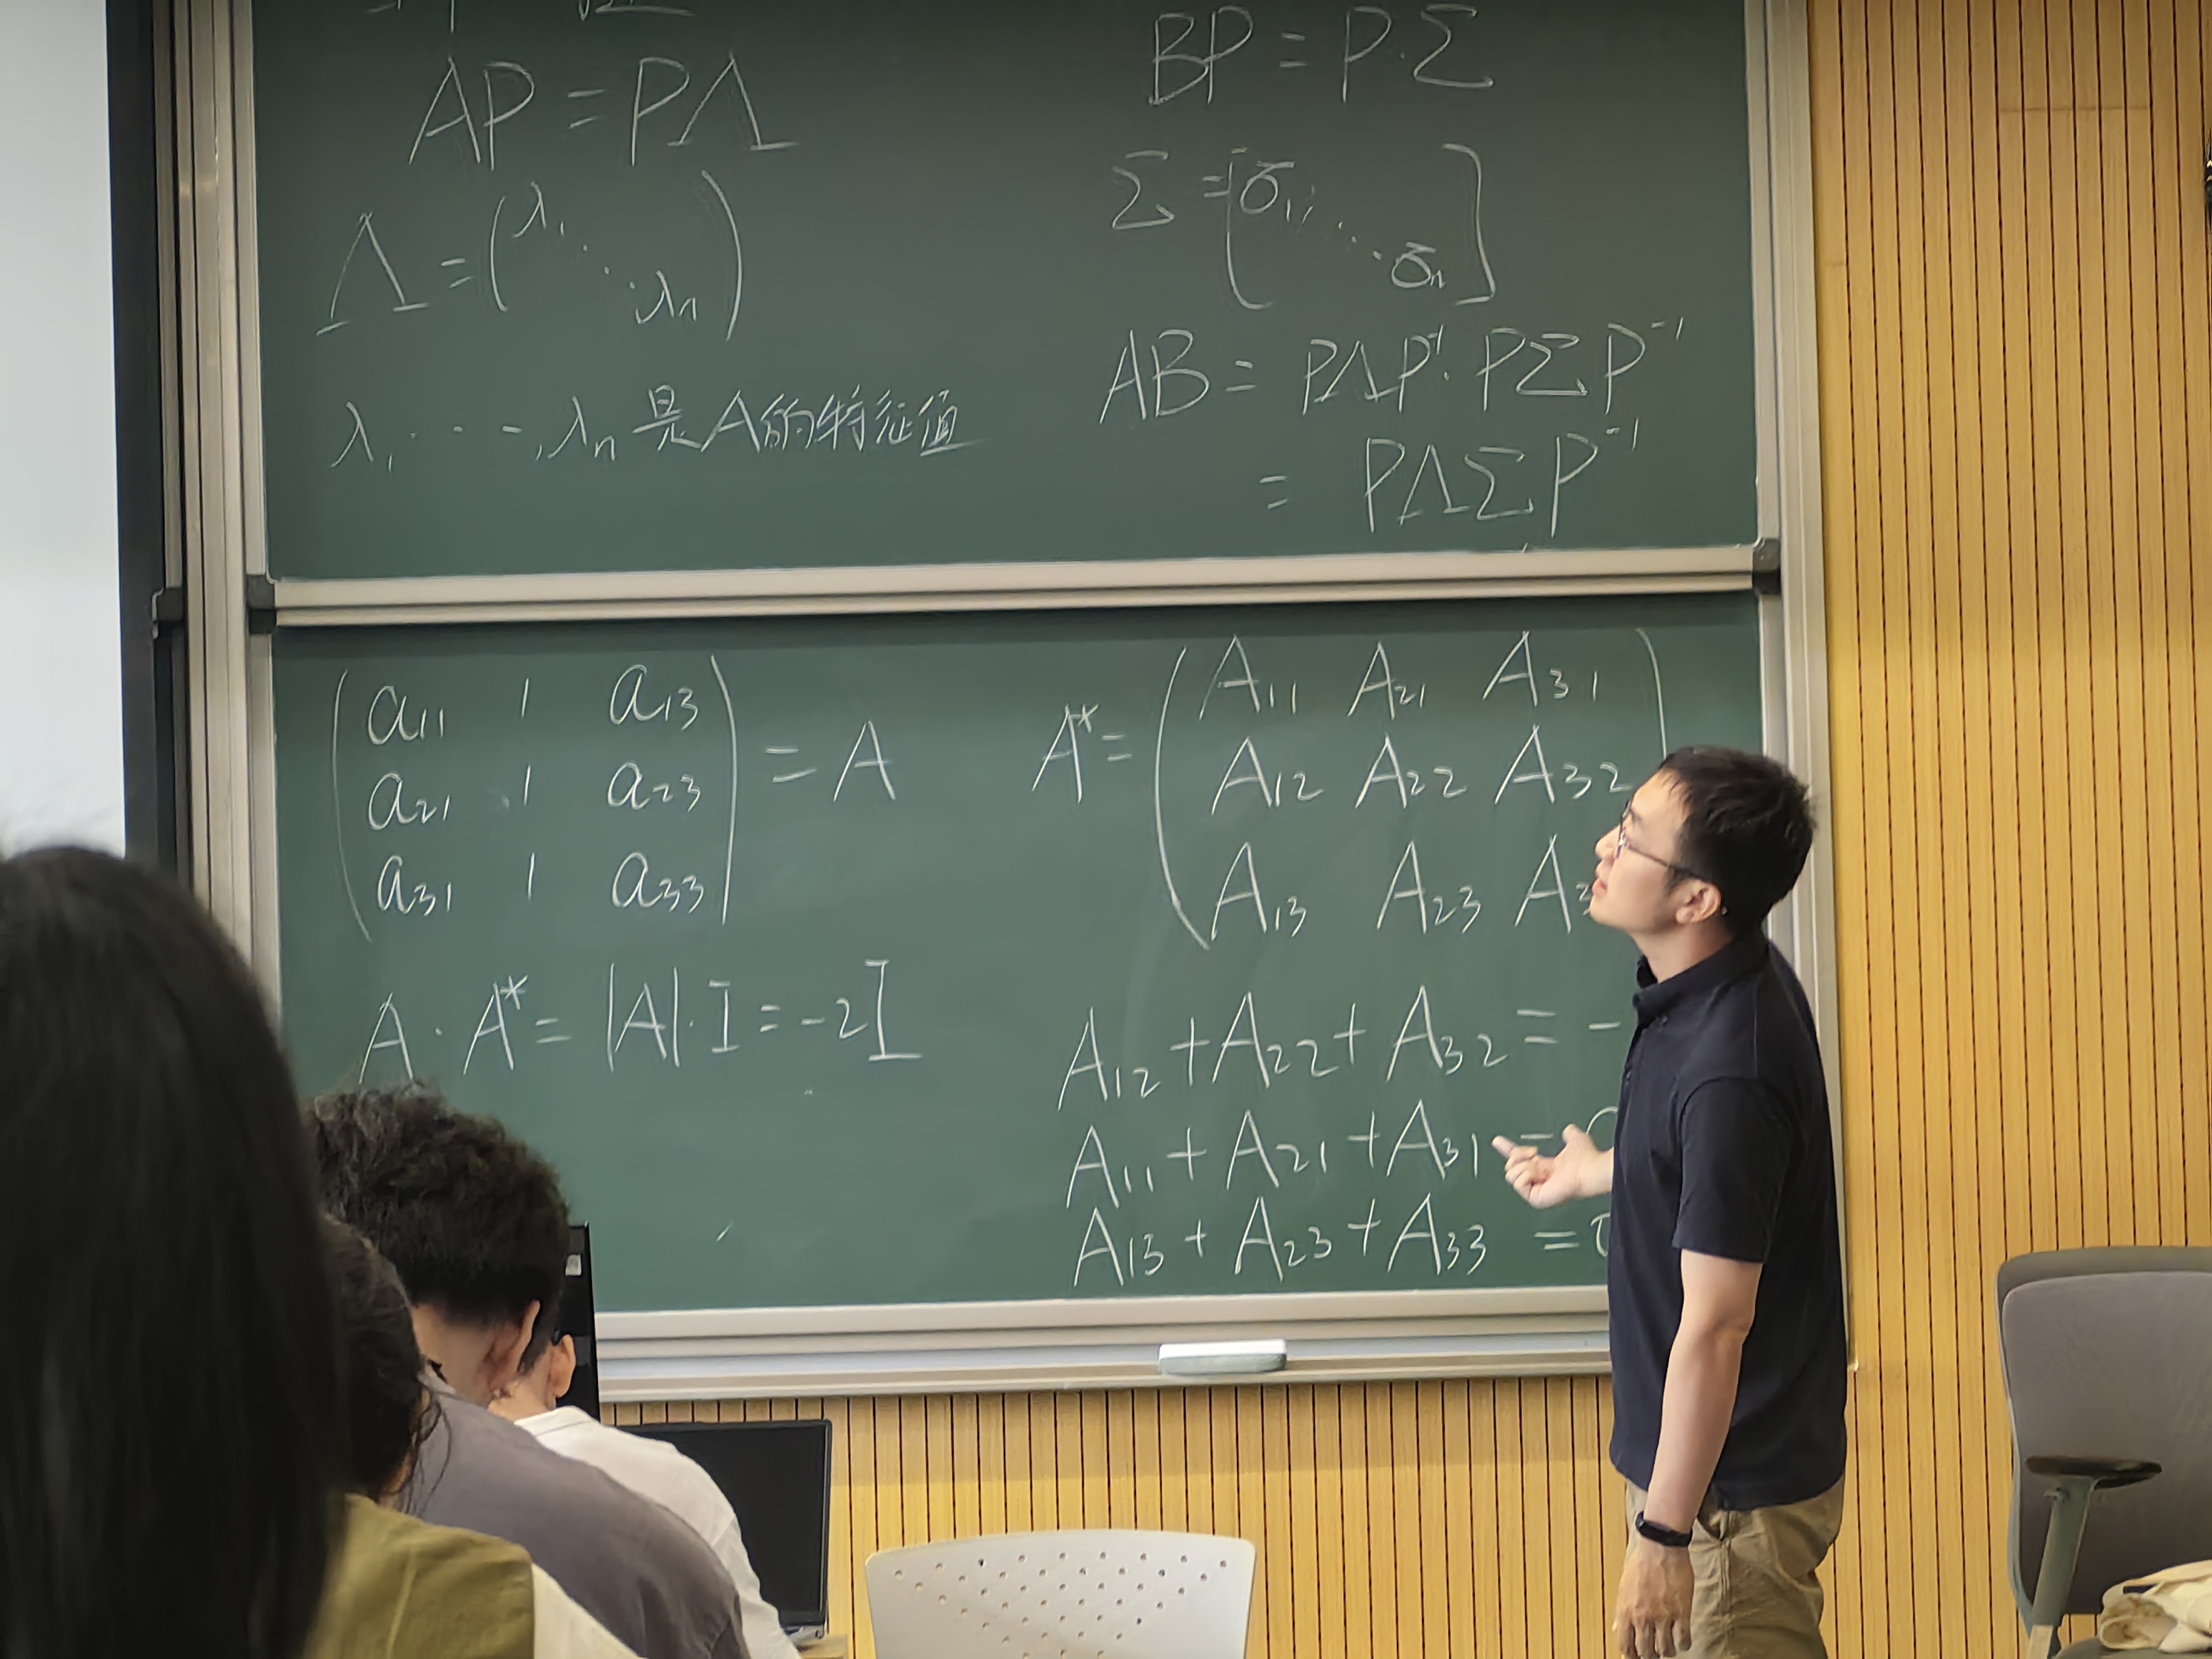 AP = PΛ
Λ = (λ₁ ⋱ λₙ)
λ₁ ⋯, λₙ 是A的特征值
BP = P·Σ
Σ = [σ₁, ⋱ σₙ]
AB = PΛP⁻¹·PΣP⁻¹
= PΛΣP⁻¹
a₁₁ 1 a₁₃
a₂₁ 1 a₂₃ = A
a₃₁ 1 a₃₃
A·A* = |A|·I = -2I
A₁₁ A₂₁ A₃₁
A* = A₁₂ A₂₂ A₃₂
A₁₃ A₂₃ A₃
A₁₂ + A₂₂ + A₃₂ = -
A₁₁ + A₂₁ + A₃₁ =
A₁₃ + A₂₃ + A₃₃ =